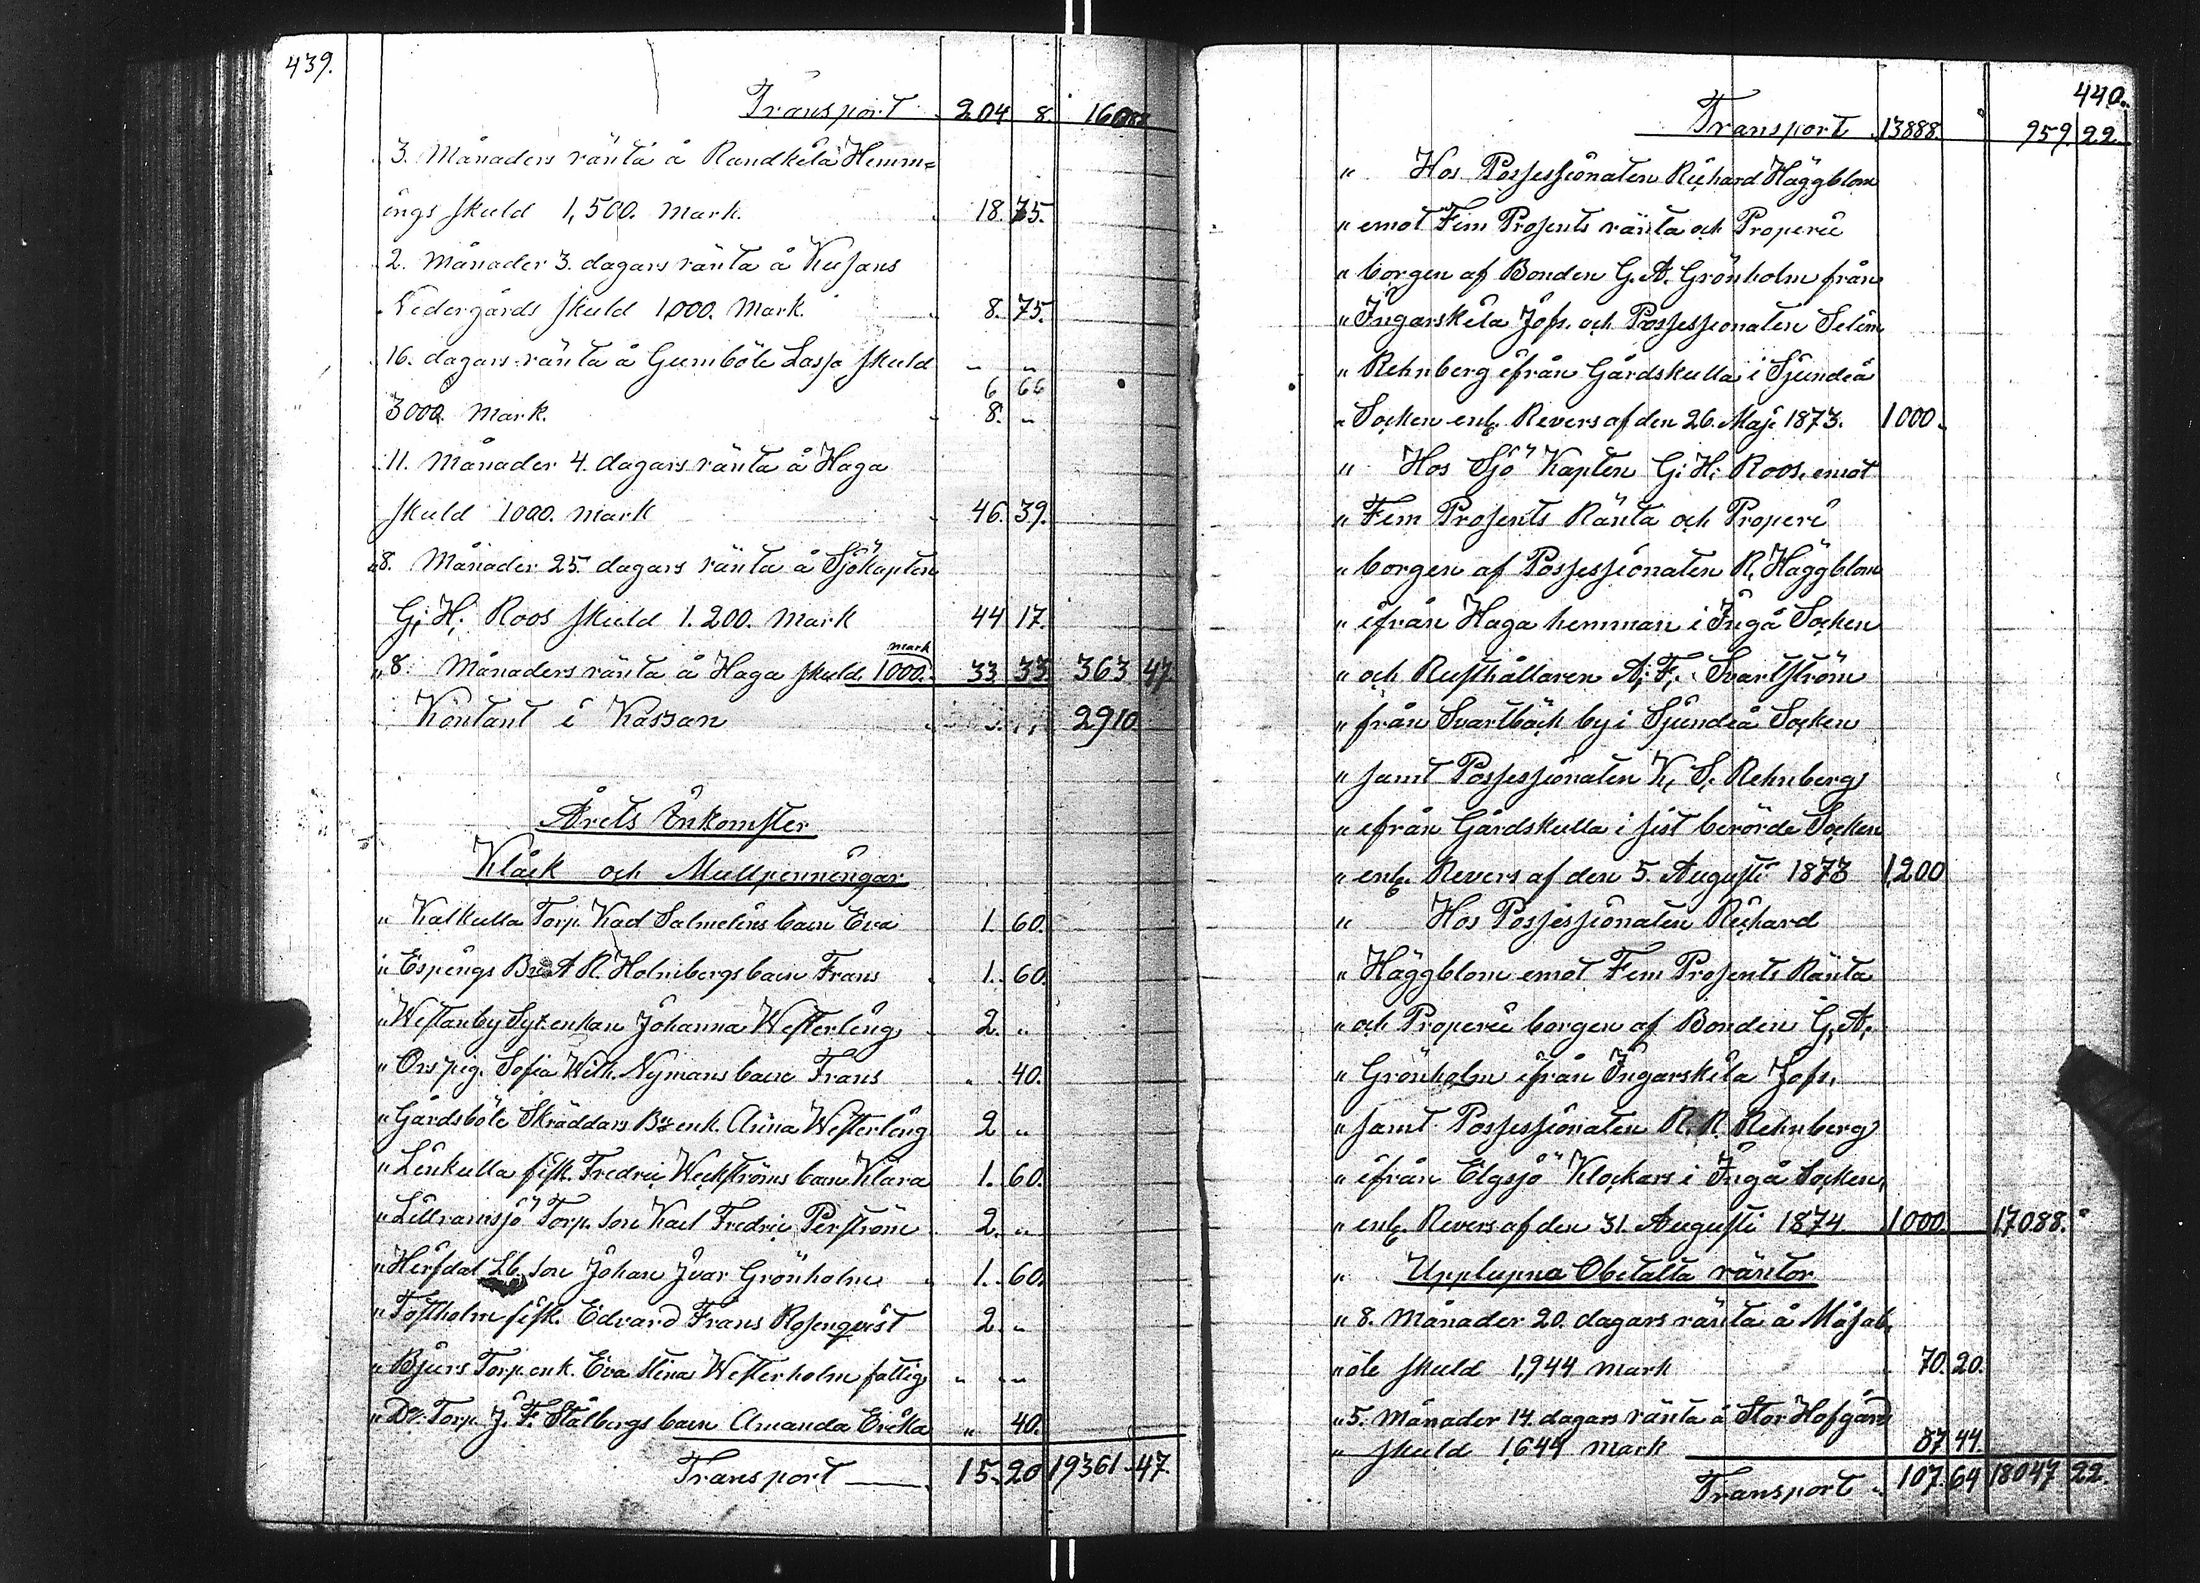 439.
Transport 204 8. 16088
3. Månaders ränta å Randkila Hemm=
ings skuld 1,500. mark. 18. 75.
2. Månader 3. dagars ränta å Kusans
Nedergårds skuld 1000. Mark. 8. 75.
16. dagars ränta å Gumböle Lassa skuld " "
6 66
3000. Mark. 8. "
11. Månader 4. dagars ränta å Haga
skuld 1000. mark 46. 39.
"8. Månader 25. dagars ränta å Sjökapten
G. H. Roos skuld 1.200. Mark 44 17.
mark
"8. Månaders ränta å Haga skuld 1000. 33 33 363 47.
Kontant i Kassan 2910.
Årets Inkomster
Klåck och Mullpenningar
" Kalkulla Torp. Karl Salmelins barn Eva 1. 60.
" Espings A R. Holmbergs barn Frans 1. 60.
" Westanby Sytenkan Johanna Westerling 2. "
" Ors pig. Sofia Wilh. Nymans barn Frans " 40.
" Gårdsböle Skräddars enk. Anna Westerling 2 "
" Linkulla fisk. Fredric Weckströms barn Klara 1. 60.
" Lillramsjö Torp. son Karl Fredric Perström 2. "
" Hirfdal Lb. son Johan Ivar Grönholm 1. 60.
" Tostholm fisk. Edvard Frans Rosenqvist 2. "
" Bjurs Torp enk. Eva Stina Westerholm fattig " "
" Do. Torp. J. F. Stålbergs barn Amanda Ericka " 40.
Transport 15. 20 19361. 47.
440.
Transport 13888. " 959. 22.
" Hos Possessionaten Richard Häggblom
" emot Fem Prosents ränta och Properie
" borgen af Bonden G. A. Grönholm från
" Ingarskila Jofs. och Possessionaten Selim
" Rehnberg ifrån Gårdskulla i Sjundeå
" Socken enl. Revers af den 26. Maji 1873. 1000.
" Hos Sjö Kapten G. H. Roos, emot
" Fem Prosents Ränta och Properi
" borgen af Possessionaten R. Häggblom
" ifrån Haga hemman i Ingå Socken
" och Rusthållaren A. F. Svartström
" från Svartbäck by i Sjundeå Socken
" samt Possessionaten K. S. Rehnberg
" ifrån Gårdskulla i sist berörde Socken
" enl. Revers af den 5. Augusti 1873 1,200
" Hos Possessionaten Richard
" Häggblom emot Fem Prosents Ränta
" och Properie borgen af Bonden G. A.
" Grönholm ifrån Ingarskila Jofs.
" samt Possessionaten R. R. Rehnberg
" ifrån Elgsjö Klockars i Ingå Socken,
" enl. Revers af den 31. Augusti 1874 1000. 17088. "
" Upplupna Obetalta räntor
" 8. Månader 20. dagars ränta å Måsab
" öle skuld 1,944 mark 70. 20.
" 5. Månader 14. dagars ränta å Stor Hofgård
" skuld 1644 mark 37 44.
Transport 107. 64 18047 22.